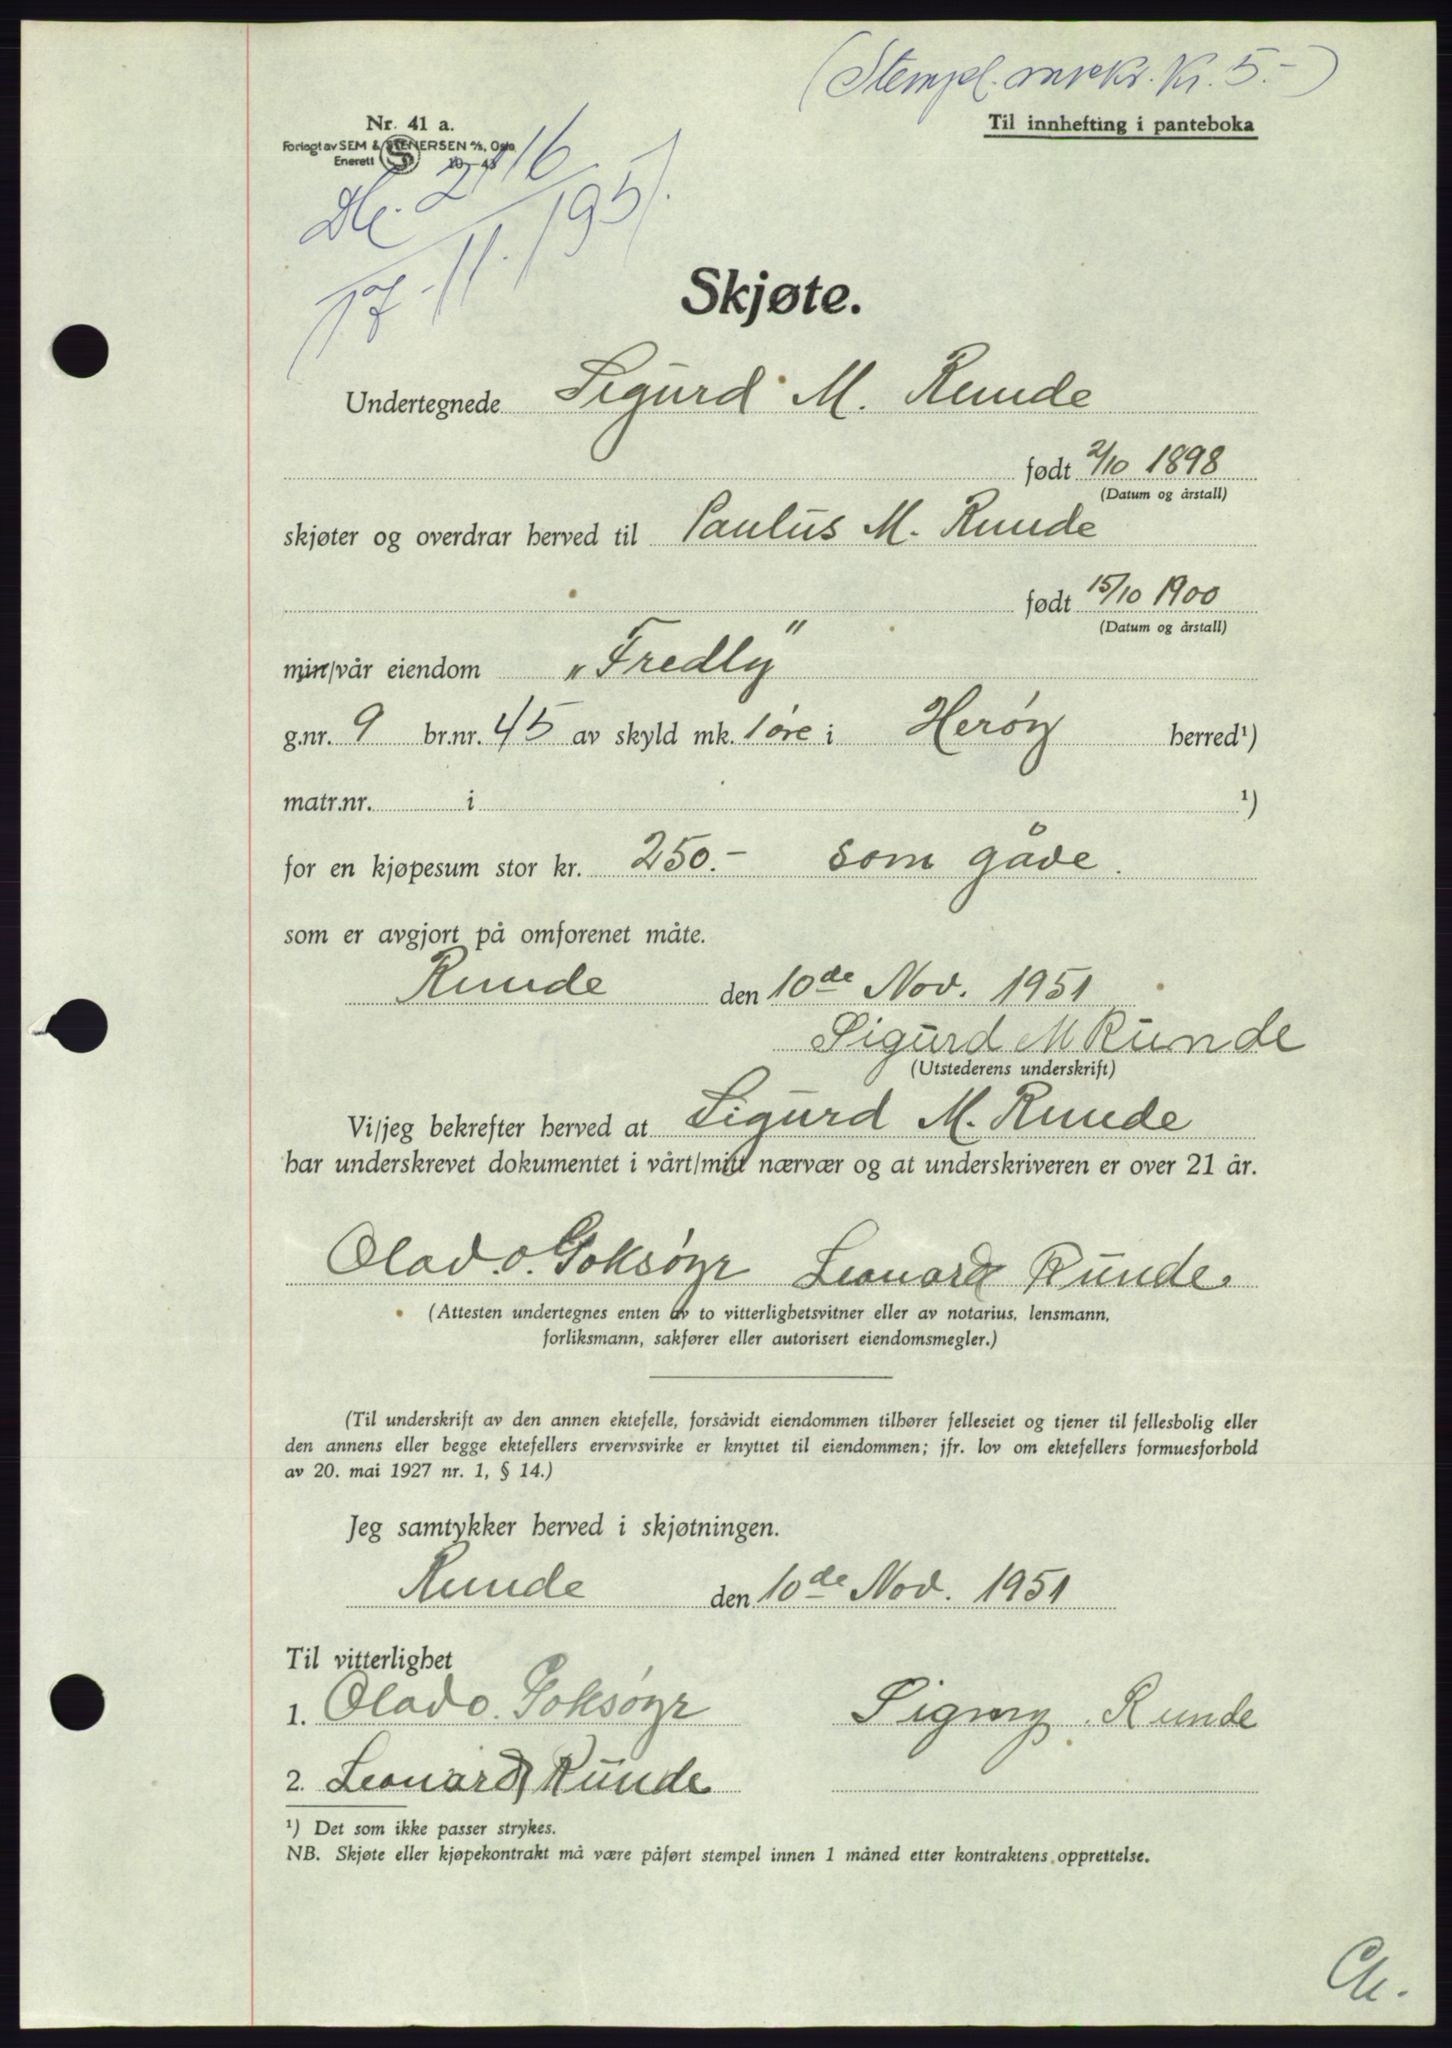 (Stempl. mrk. Kr. 5.-)
Til innhefting i panteboka
Nr. 41 a.
Forlagt av SEM & STENERSEN A/S, Oslo
Enerett 10-43
2116
17-11.1951.
Skjøte.
Undertegnede Sigurd M. Runde
født 2/10 1898
(Datum og årstall)
skjøter og overdrar herved til Paulus M. Runde
født 15/10 1900
(Datum og årstall)
min/vår eiendom „Fredly”
g.nr. 9 br.nr. 45 av skyld mk. 1 øre i Herøy herred¹)
matr.nr. i ¹)
for en kjøpesum stor kr. 250.- som gåve.
som er avgjort på omforenet måte.
Runde den 10de Nov. 1951
Sigurd M Runde
(Utstederens underskrift)
Vi/jeg bekrefter herved at Sigurd M. Runde
har underskrevet dokumentet i vårt/mitt nærvær og at underskriveren er over 21 år.
Olav O. Goksøyr Leonard Runde.
(Attesten undertegnes enten av to vitterlighetsvitner eller av notarius, lensmann,
forliksmann, sakfører eller autorisert eiendomsmegler.)
(Til underskrift av den annen ektefelle, forsåvidt eiendommen tilhører felleseiet og tjener til fellesbolig eller
den annens eller begge ektefellers ervervsvirke er knyttet til eiendommen; jfr. lov om ektefellers formuesforhold
av 20. mai 1927 nr. 1, § 14.)
Jeg samtykker herved i skjøtningen.
Runde den 10de Nov. 1951
Til vitterlighet
1. Olav O. Goksøyr Signy Runde
2. Leonard Runde
¹) Det som ikke passer strykes.
NB. Skjøte eller kjøpekontrakt må være påført stempel innen 1 måned etter kontraktens opprettelse.